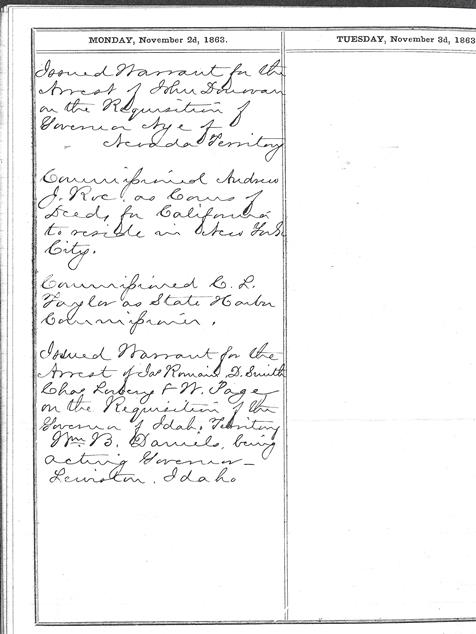 MONDAY, November 2d, 1863.
Issued Warrant for the
Arrest of John Donovan
on the Requisition of
Governor Nye of
Nevada Territory
Commissioned Andrew
J. Roe, as Coms of
Deeds for California
to reside in New York
City.
Commissioned C. L.
Taylor as State Harbor
Commissioner.
Issued Warrant for the
Arrest of Jas Romain D. Smith
Chas & W. Page
on the Requisition of the
Governor of Idaho Territory
Wm. B. Daniels, being
acting Governor—
Lewiston, Idaho
TUESDAY, November 3d, 1863